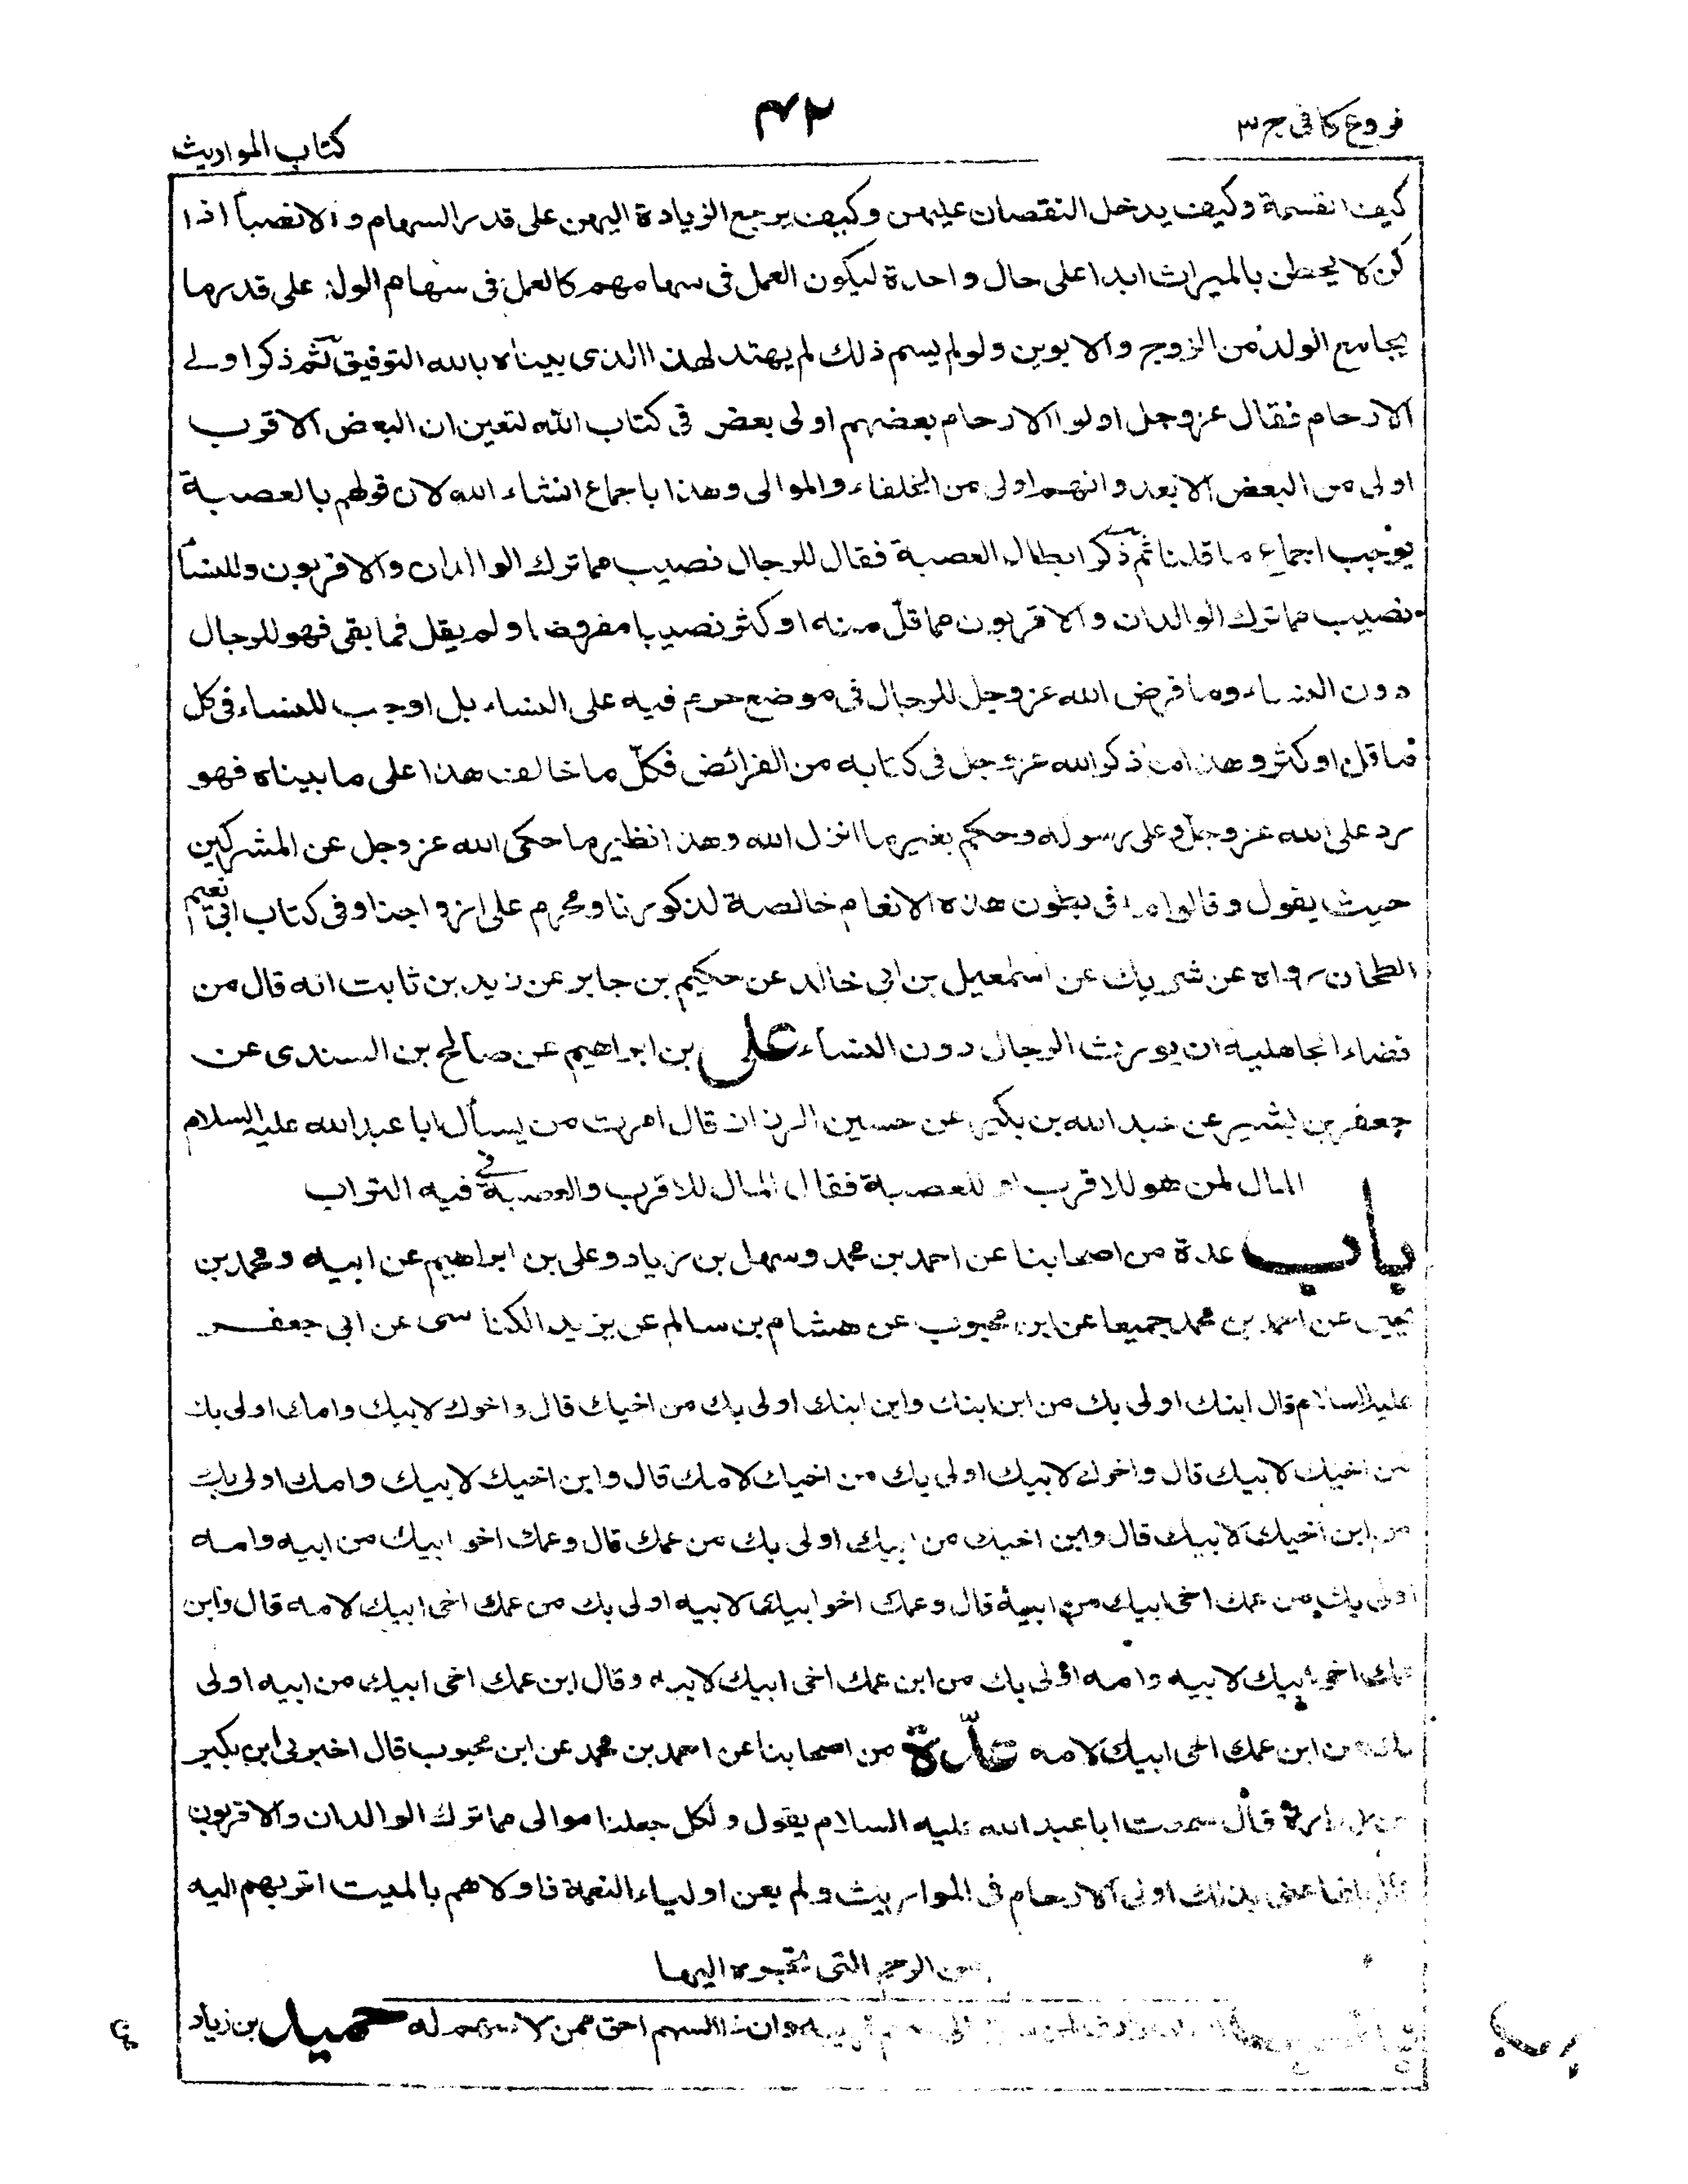 فروع كافى ج ٣
٤٢
كتاب المواريث
كيف القسمة وكيف يدخل النقصان عليهن وكيف يرجع الزيادة اليهن على قدر السهام و الانصبا اذا
كن لا يحطن بالميراث ابدا على حال واحدة ليكون العمل فى سهامهم كالعمل فى سهام الولد على قدر ما
يجامع الولد من الزوج والابوين ولو لم يسم ذلك لم يهتد لهذا الذى بيناه بالله التوفيق ثم ذكر اولى
الارحام فقال عز وجل اولوا الارحام بعضهم اولى ببعض فى كتاب الله لتعين ان البعض الاقرب
اولى من البعض الابعد وانهم اولى من الخلفاء والموالى وهذا باجماع انشاء الله لان قولهم بالعصبة
يوجب اجماع ما قلنا ثم ذكر ابطال العصبة فقال للرجال نصيب مما ترك الوالدان والاقربون وللنسأ
نصيب مما ترك الوالدان والاقربون مما قل منه او كثر نصيبا مفروضا ولم يقل فما بقى فهو للرجال
دون النساء وما فرض الله عز وجل للرجال فى موضع حرم فيه على النساء بل اوجب للنساء فى كل
ما قل او كثر وهذا ما ذكر الله عز وجل فى كتابه من الفرائض فكل ما خالف هذا على ما بيناه فهو
رد على الله عز وجل وعلى رسوله وحكم بغير ما انزل الله وهذا نظير ما حكى الله عز وجل عن المشركين
حيث يقول وقالوا ما فى بطون هذه الانعام خالصة لذكورنا ومحرم على ازواجنا وفى كتاب ابى نعيم
الطحان رواه عن شريك عن اسمعيل بن ابى خالد عن حكيم بن جابر عن زيد بن ثابت انه قال من
قضاء الجاهلية ان يورث الرجال دون النساء على بن ابراهيم عن صالح بن السندى عن
جعفر بن بشير عن عبد الله بن بكير عن حسين الرزاز قال امرت من يسأل ابا عبد الله عليه السلام
المال لمن هو للاقرب او للعصبة فقال المال للاقرب والعصبة فى فيه التراب
باب عدة من اصحابنا عن احمد بن محمد وسهل بن زياد وعلى بن ابراهيم عن ابيه و محمد بن
يحيى عن احمد بن محمد جميعا عن ابن محبوب عن هشام بن سالم عن يزيد الكناسى عن ابى جعفر
عليه السلام قال ابنك اولى بك من ابن ابنك وابن ابنك اولى بك من اخيك قال واخوك لابيك وامك اولى بك
من اخيك لابيك قال واخوك لابيك اولى بك من اخيك لامك قال وابن اخيك لابيك وامك اولى بك
من ابن اخيك لابيك قال وابن اخيك من ابيك اولى بك من عمك قال وعمك اخو ابيك من ابيه وامه
اولى بك من عمك اخى ابيك من ابيه قال وعمك اخو ابيك لابيه اولى بك من عمك اخى ابيك لامه قال وابن
عمك اخى ابيك لابيه وامه اولى بك من ابن عمك اخى ابيك لابيه وقال ابن عمك اخى ابيك من ابيه اولى
بك من ابن عمك اخى ابيك لامه عدة من اصحابنا عن احمد بن محمد عن ابن محبوب قال اخبرنى ابن بكير
عن زرارة قال سمعت ابا عبد الله عليه السلام يقول ولكل جعلنا موالى مما ترك الوالدان والاقربون
قال انما عنى بذلك اولى الارحام فى المواريث ولم يعن اولياء النعمة فاولاهم بالميت اقربهم اليه
من الرحم التى تجره اليها
وان ذا السهم احق ممن لا سهم له حميد بن زياد
باب